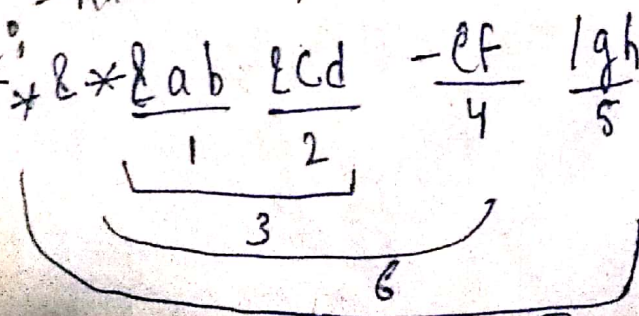 * & * & a b & c d - e f / g h
1 2 4 5
3
6